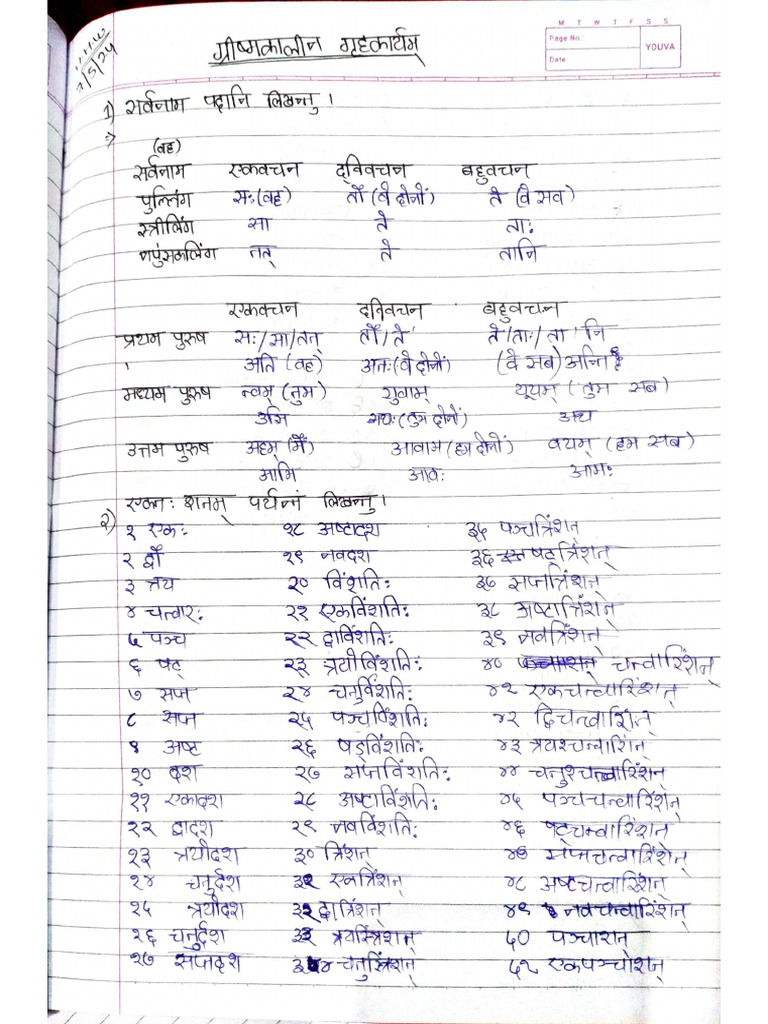 M T W T F S S
Page No.
Date
YOUVA
7/5/24
ग्रीष्मकालीन गृहकार्यम्
1) सर्वनाम पदानि लिखन्तु ।
(वह)
सर्वनाम एकवचन द्विवचन बहुवचन
पुल्लिंग सः (वह) तौ (वे दोनों) ते (वे सब)
स्त्रीलिंग सा ते ताः
नपुंसकलिंग तत् ते तानि
एकवचन द्विवचन बहुवचन
प्रथम पुरुष सः/सा/तत् तौ/ते ते/ताः/तानि
अति (वह) अतः (वे दोनों) (वे सब) अन्ति
मध्यम पुरुष त्वम् (तुम) युवाम् यूयम् (तुम सब)
असि अथः (तुम दोनों) अथ
उत्तम पुरुष अहम् (मैं) आवाम (हम दोनों) वयम् (हम सब)
आमि आवः आमः
२) एकतः शतम् पर्यन्तं लिखन्तु ।
१ एकः १८ अष्टादश ३५ पञ्चत्रिंशत्
२ द्वौ १९ नवदश ३६ षट्त्रिंशत्
३ त्रय २० विंशतिः ३७ सप्तत्रिंशत्
४ चत्वारः २१ एकविंशतिः ३८ अष्टात्रिंशत्
५ पञ्च २२ द्वाविंशतिः ३९ नवत्रिंशत्
६ षट् २३ त्रयोविंशतिः ४० चत्वारिंशत्
७ सप्त २४ चतुर्विंशतिः ४१ एकचत्वारिंशत्
८ सप्त २५ पञ्चविंशतिः ४२ द्विचत्वारिंशत्
९ अष्ट २६ षड्विंशतिः ४३ त्रयश्चत्वारिंशत्
१० दश २७ सप्तविंशतिः ४४ चतुश्चत्वारिंशत्
११ एकादश २८ अष्टाविंशतिः ४५ पञ्चचत्वारिंशत्
१२ द्वादश २९ नवविंशतिः ४६ षट्चत्वारिंशत्
१३ त्रयोदश ३० त्रिंशत् ४७ सप्तचत्वारिंशत्
१४ चतुर्दश ३१ एकत्रिंशत् ४८ अष्टचत्वारिंशत्
१५ त्रयोदश ३२ द्वात्रिंशत् ४९ नवचत्वारिंशत्
१६ चतुर्दश ३३ त्रयस्त्रिंशत् ५० पञ्चाशत्
१७ सप्तदश ३४ चतुस्त्रिंशत् ५१ एकपञ्चाशत्